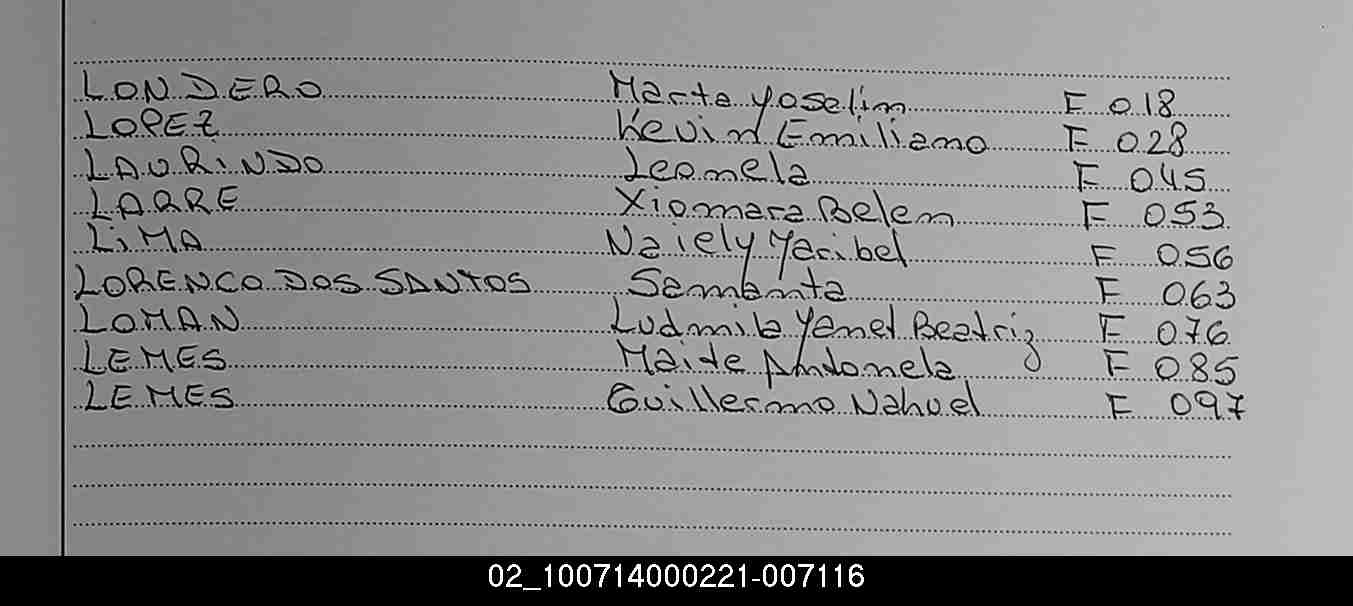 LONDERO Marta Yoselim F 018
LOPEZ Kevin Emiliano F 028
LAURINDO Leonela F 045
LARRE Xiomara Belem F 053
LiMA Naiely Maribel F 056
LORENCO DOS SANTOS Samanta F 063
LOMAN Ludmila Yanet Beatriz F 076
LEMES Maite Antonela F 085
LEMES Guillermo Nahuel F 097
02_100714000221-007116